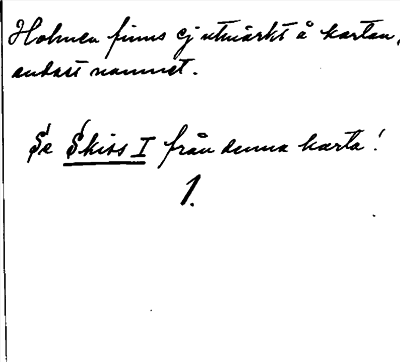 Holmen finns ej utmärkt å kartan,
endast namnet.
Se Skiss I från denna karta!
1.